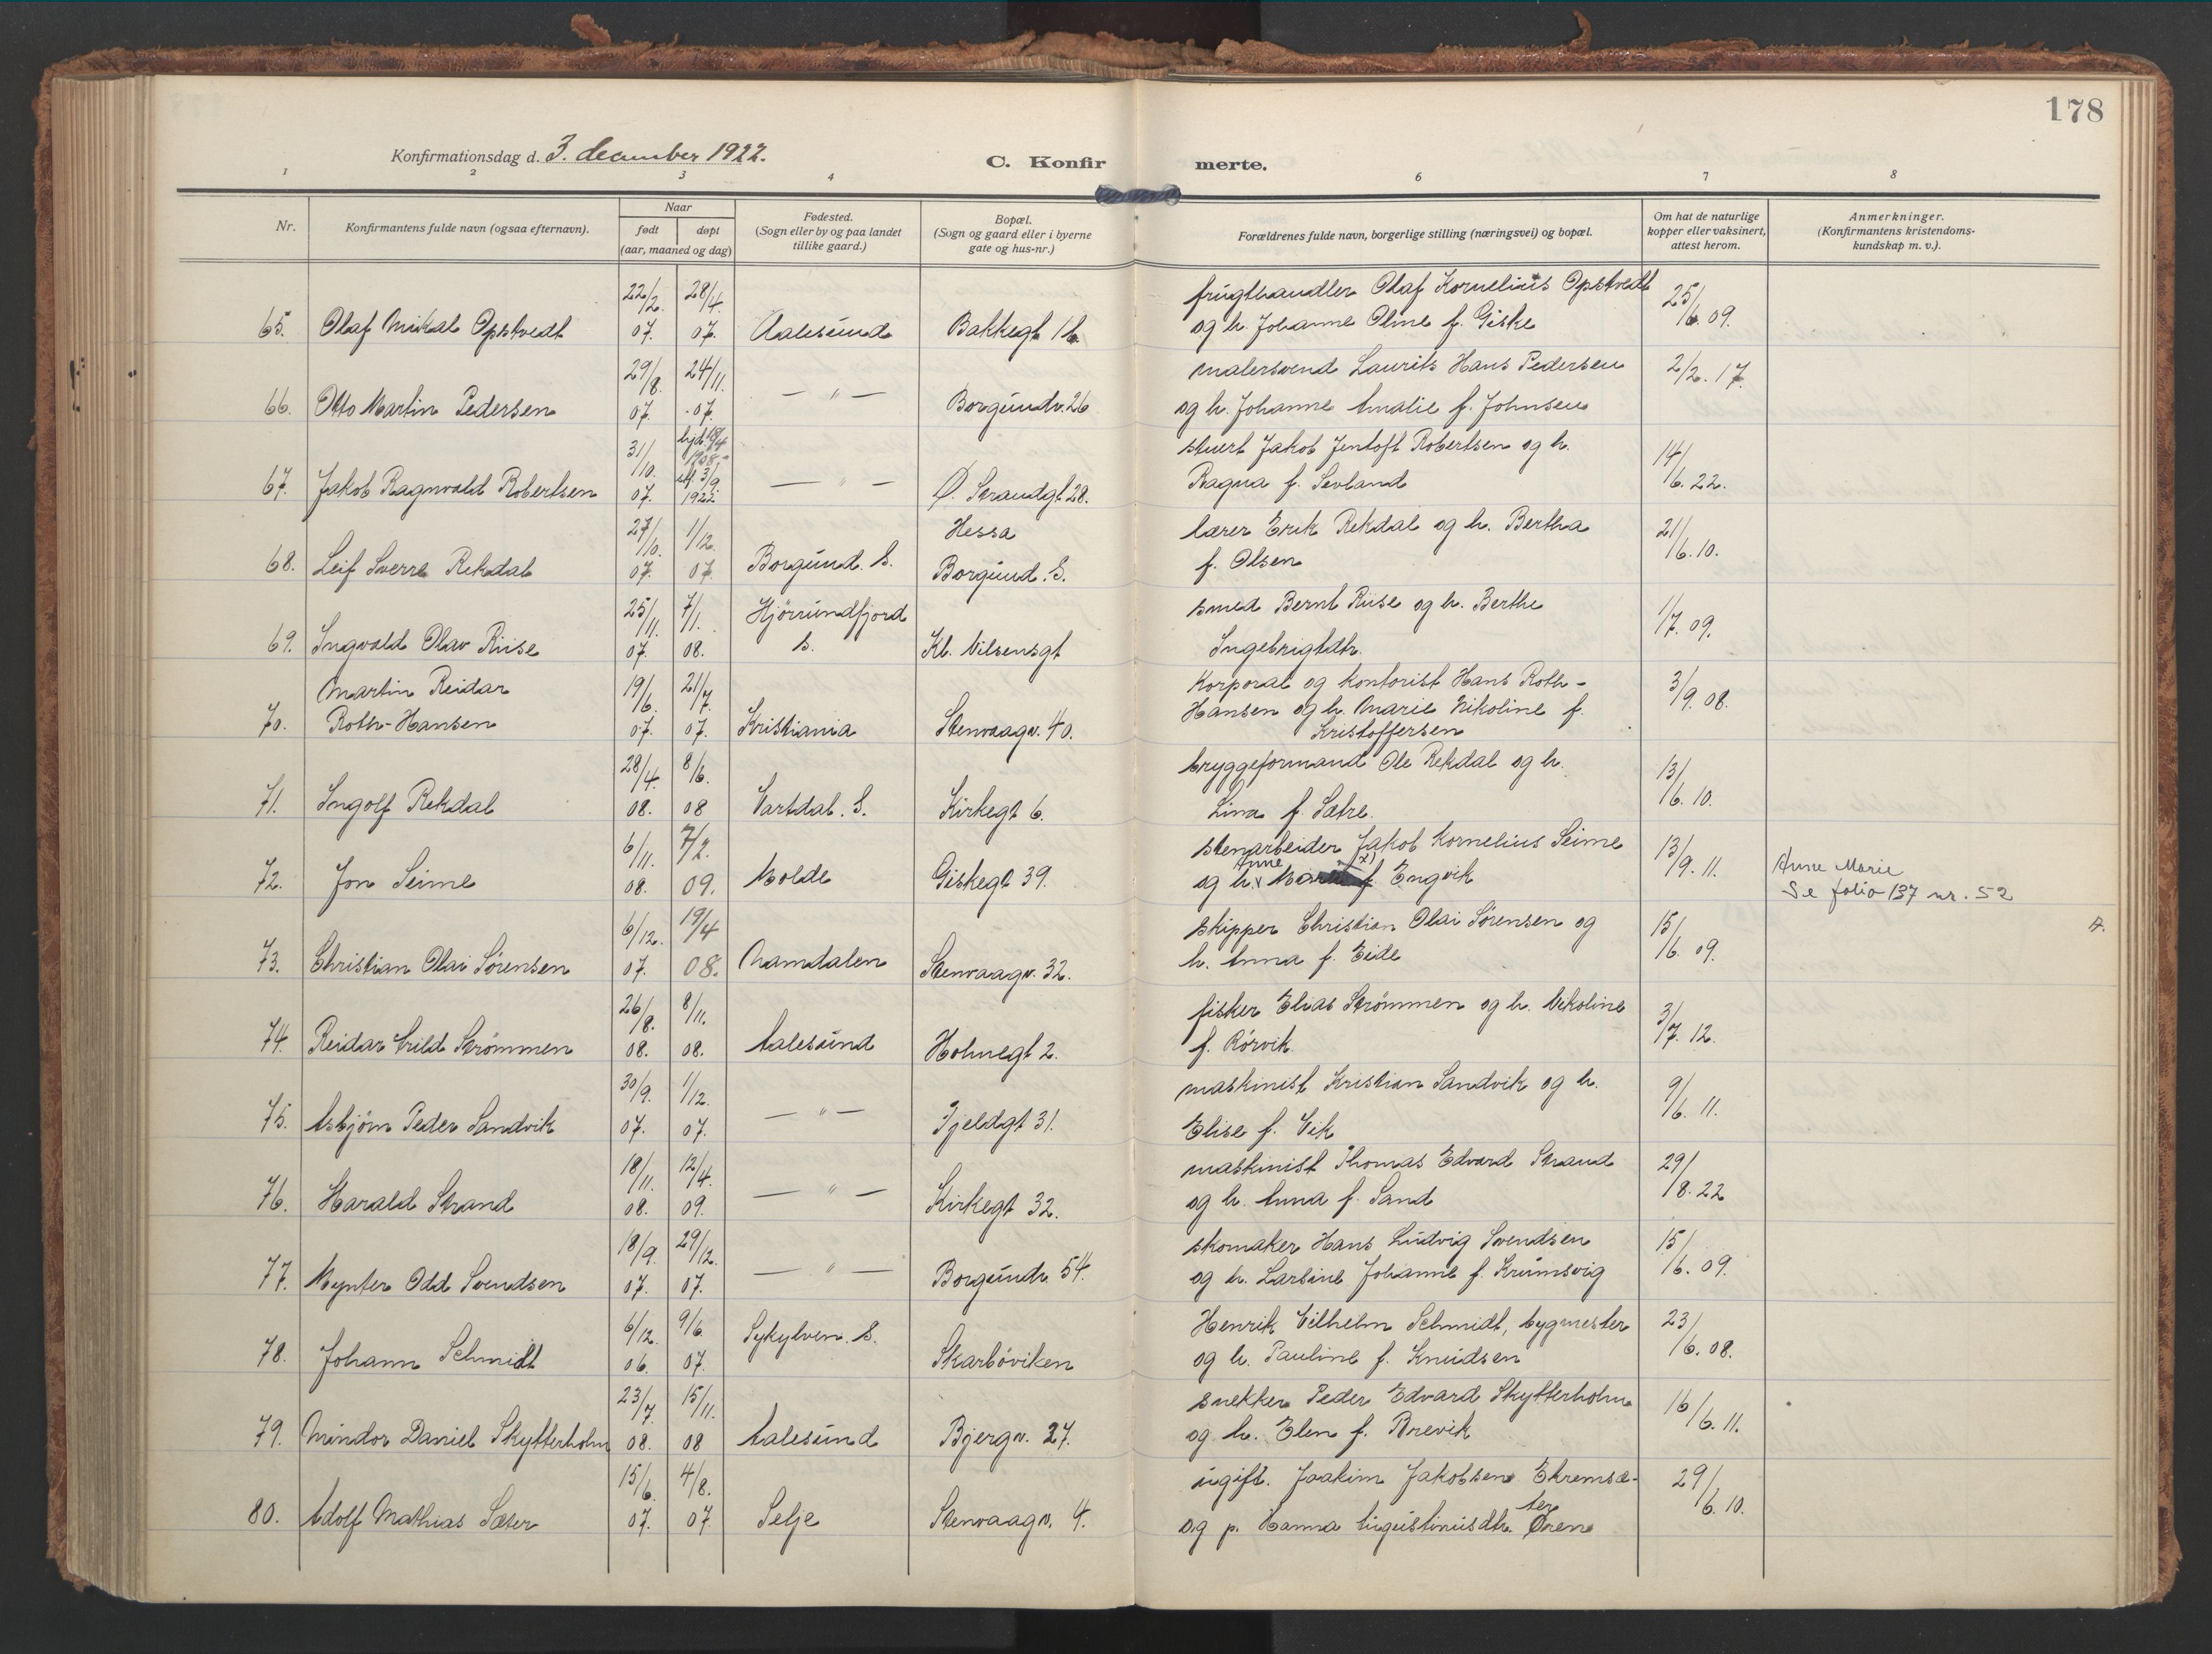 178
Konfirmationsdag d. 3. december 1922.
C. Konfir merte.
1 2 3 4 6 7 8
Nr.
Konfirmantens fulde navn (ogsaa efternavn).
Naar
født døpt
(aar, maaned og dag)
Fødested.
(Sogn eller by og paa landet
tillike gaard.)
Bopæl.
(Sogn og gaard eller i byerne
gate og hus-nr.)
Forældrenes fulde navn, borgerlige stilling (næringsvei) og bopæl.
Om hat de naturlige
kopper eller vaksinert,
attest herom.
Anmerkninger.
(Konfirmantens kristendoms-
kundskap m. v.).
22/2. 28/4. frugthandler Olaf Kornelius Opstvedt 25/6. 09.
65. Olaf Mikal Opstvedt 07. 07. Aalesund Bakkegt 16. og h. Johanne Oline f. Giske
29/8. 24/11. malersvend Laurits Hans Pedersen 2/2. 17.
66. Otto Martin Pedersen 07. 07. — " — Borgundv. 26 og h. Johanne Amalie f. Johnsen
31/10. hjd. 18/4 1908 stuert Jakob Jentoft Robertsen og h. 14/6. 22.
67. Jakob Ragnvald Robertsen 07. 3/9 1922 — " — Ø. Strandgt 28. Ragna f. Sevland
27/10. 1/12. Hessa lærer Erik Rekdal og h. Bertha 21/6. 10.
68. Leif Sverre Rekdal 07. 07. Borgund. S. Borgund. S. f. Olsen
25/11. 7/1. Hjörundfjord smed Bernt Riise og h. Berthe 1/7. 09.
69. Ingvald Olav Riise 07. 08. S. Kl. Nilsensgt Ingebrigtdtr.
Martin Reidar 19/6. 21/7. Korporal og kontorist Hans Roth- 3/9. 08.
70. Roth-Hansen 07. 07. Kristiania Stenvaagv. 40. Hansen og h. Marie Nikoline f.
Kristoffersen
28/4. 8/6. bryggeformand Ole Rekdal og h. 13/6. 10.
71. Ingolf Rekdal 08. 08 Vartdal. S. Kirkegt 6. Lina f. Sætre.
6/11. 7/2. stenarbeider Jakob Kornelius Seime 13/9. 11. Anne Marie
72. Jon Seime 08. 09. Molde Giskegt 39. og h. Anne f. Engvik Se folio 137 nr. 52
6/12. 19/4 skipper Christian Olai Sørensen og 15/6. 09.
73. Christian Olai Sörensen 07. 08. Namdalen Stenvaagv. 32. h. Anna f. Eide
26/8. 8/11. fisker Elias Strömmen og h. Nikoline 3/7. 12.
74. Reidar Arild Strömmen 08. 08. Aalesund Holmegt 2. f. Rörvik
30/9. 1/12. maskinist Kristian Sandvik og h. 9/6. 11.
75. Asbjörn Peder Sandvik 07. 07. — " — Fjeldgt 31. Elise f. Vik
18/11. 12/4. maskinist Thomas Edvard Strand 29/8. 22
76. Harald Strand 08. 09. — " — Kirkegt 32. og h. Anna f. Sand
18/9. 29/12. skomaker Hans Ludvig Svendsen 15/6. 09.
77. Mynter Odd Svendsen 07. 07. — " — Borgundv. 54. og h. Larsine Johanne f. Krumsvig
6/12. 9/6. Sykylven. S. Henrik Vilhelm Schmidt, bygmester 23/6. 08.
78. Johann Schmidt 06. 07. Skarbövikèn og h. Pauline f. Knudsen
23/7. 15/11. snekker Peder Edvard Skytterholm 16/6. 11.
79. Mindor Daniel Skytterholm 08. 08 Aalesund Bjergv. 27. og h. Elen f. Brevik
15/6. 4/8. ugift. Joakim Jakobsen Ekremsæ- 29/6. 10.
ter
80. Adolf Mathias Sæter 07. 07 Selje Stenvaagv. 4. og p. Hanna Augustinusdtr. Ørene